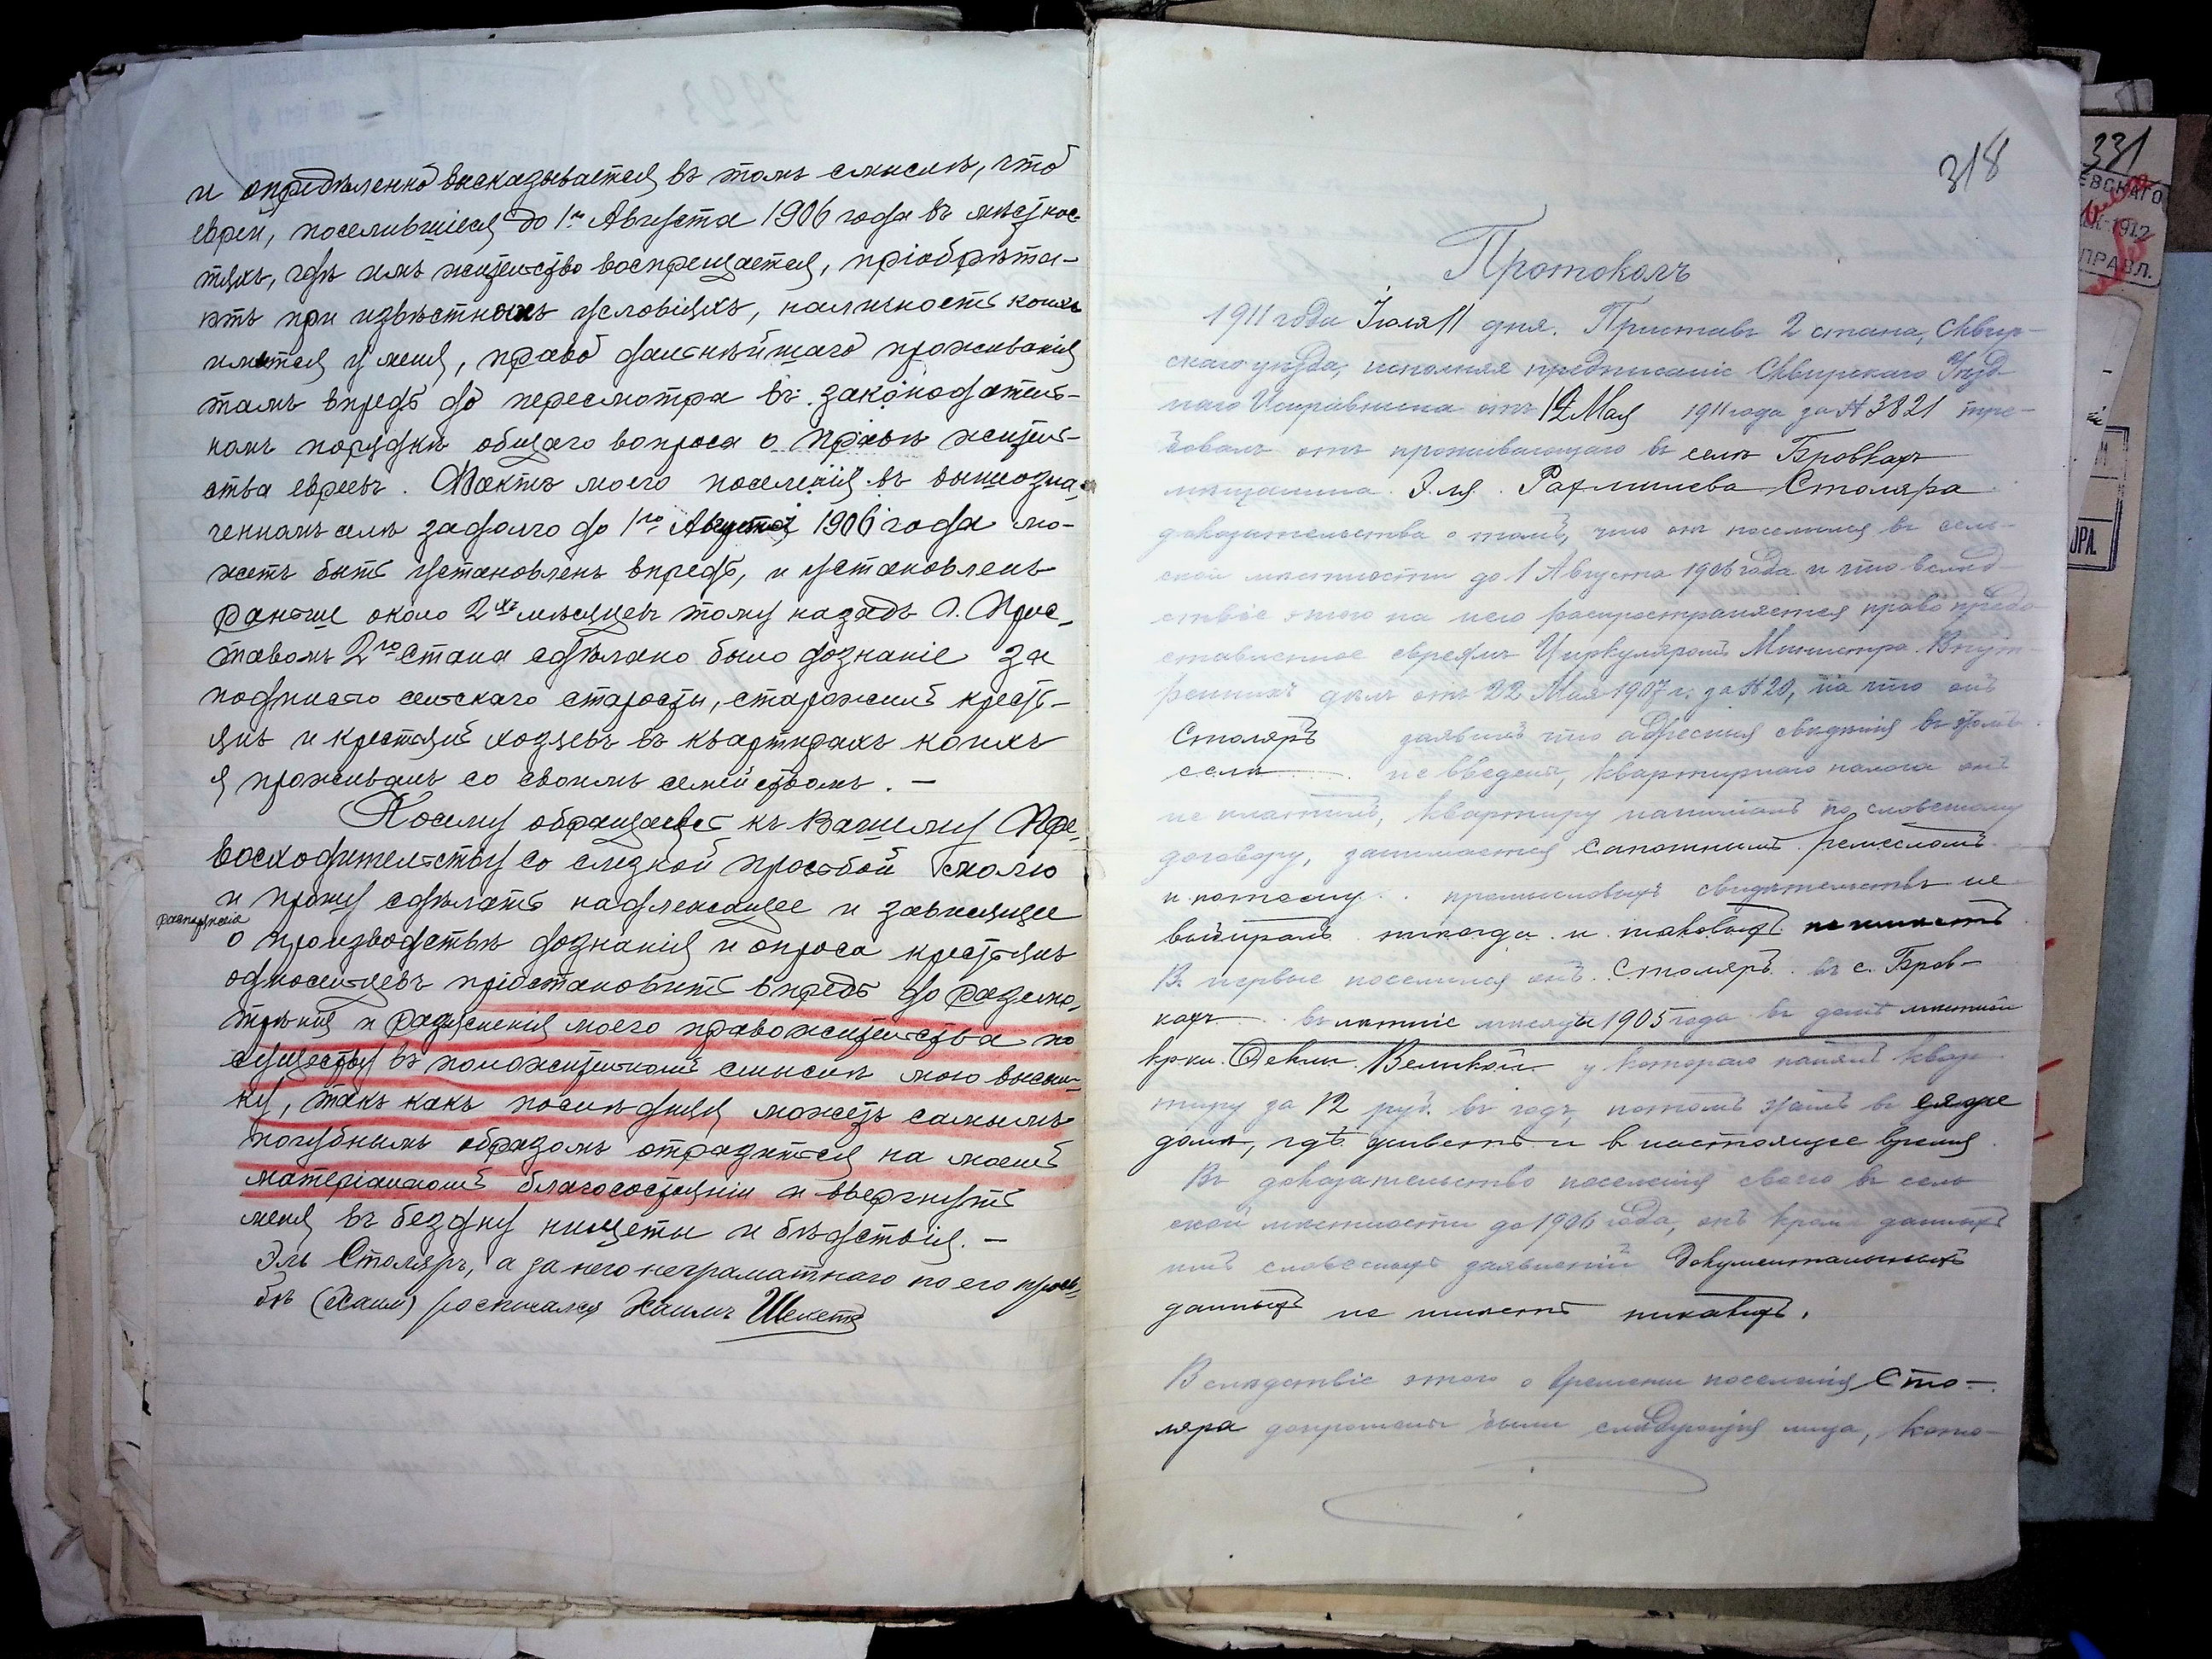 и опредѣленно высказывается въ томъ смыслѣ, что
евреи, поселившіеся до 1го Августа 1906 года въ мѣстнос-
тяхъ, гдѣ имъ жительство воспрещается, пріобрѣта-
ютъ при извѣстныхъ условіяхъ, наличность коихъ
имѣется у меня, право дальнѣйшаго проживанія
тамъ впредь до пересмотра въ законодатель-
номъ порядкѣ общаго вопроса о правѣ житель-
ства евреевъ. Фактъ моего поселенія въ вышеозна-
ченномъ селѣ задолго до 1го Августа 1906 года мо-
жетъ быть установленъ впредь, и установленъ
раньше около 2хъ мѣсяцевъ тому назадъ г. Прис-
тавомъ 2го стана сдѣлано было дознаніе за
подписью сельскаго старосты, старожилъ кресть-
янъ и крестьянъ хозяевъ въ квартирахъ коихъ
я проживалъ со своимъ семействомъ. —
Посему обращаюсь къ Вашему Пре-
восходительству со слезной просьбой молю
и прошу сдѣлать надлежащее и зависящее
распоряженіе
о производствѣ дознанія и опроса крестьянъ
односельцевъ пріостановить впредь до разсмо-
трѣнія и разъясненія моего правожительства по
существу въ положительномъ смыслѣ мою высыл-
ку, такъ какъ послѣдняя можетъ самымъ
пагубнымъ образомъ отразиться на моемъ
матеріальномъ благосостояніи и ввергнуть
меня въ бездну нищеты и бѣдствія. —
Эль Столяръ, а за него неграматнаго по его прось-
бѣ (Хаим) росписался Хаимъ
318
Протоколъ
1911 года Іюля 11 дня. Приставъ 2 стана, Сквир-
скаго уѣзда, исполняя предписаніе Сквирскаго Уѣзд
наго Исправника отъ 12 Мая 1911 года за № 3821 тре-
бовалъ отъ проживающаго въ селѣ Бровкахъ
мѣщанина Эля Столяра
доказательства о томъ, что онъ поселился въ сель-
ской мѣстности до 1 Августа 1906 года и что вслѣд-
ствіе этого на него распространяется право предо
ставленное евреямъ Циркуляромъ Министра Внут-
реннихъ дѣлъ отъ 22 Мая 1907 г. за № 20, на что онъ
Столяръ заявилъ что адресныя свѣдѣнія въ этомъ
селѣ не введены, квартирнаго налога онъ
не платилъ, квартиру нанималъ по словесному
договору, занимается сапожнымъ ремесломъ
и потому промысловыхъ свидѣтельствъ не
выбиралъ никогда и таковыхъ не имѣетъ
В первые поселился онъ Столяръ въ с. Бров-
кахъ въ лѣтніе мѣсяцы 1905 года въ домѣ мѣстной
кр-ки Феклы Великой у котораго нанялъ квар
тиру за 12 руб. въ годъ, потомъ въ
домѣ, гдѣ живетъ и в настоящее время
Въ доказательство поселенія своего въ сель
ской мѣстности до 1906 года, онъ кромѣ данныхъ
имъ словесныхъ заявленій документальныхъ
данныхъ не имѣетъ никакихъ.
Вслѣдствіе этого о времени поселенія Сто-
ляра допрошены были слѣдующія лица, кото-
331
1912